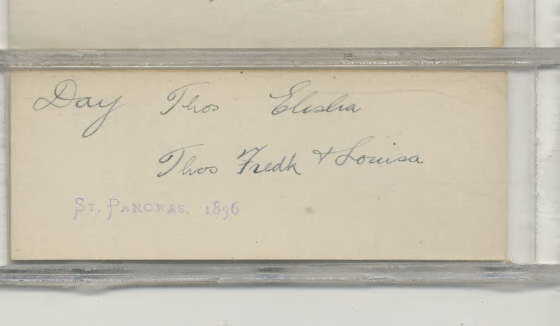 Day Thos Elisha
Thos Fredk & Louisa
St. Pancras. 1896